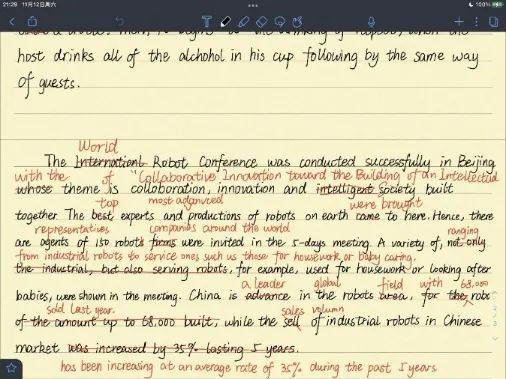 21:29 11月12日周六
100%
host drinks all of the alchohol in his cup following by the same way
of guests.
World
The International Robot Conference was conducted successfully in Beijing
with the of "Collaborative Innovation toward the Building of an Intellectual
whose theme is colloboration, innovation and intelligent Society built
top most advanced were brought
together The best experts and productions of robots on earth came to here. Hence, there
representatives companies around the world ranging
are agents of 150 robots firms were invited in the 5-days meeting. A variety of, not only
from industrial robots to service ones such us those for housework or baby caring.
the industrial, but also serving robots, for example, used for housework or looking after
a leader global field with 68,000
babies, were shown in the meeting. China is advance in the robots area, for the robts
sold last year. sales volumn
of the amount up to 68,000 built, while the sell of industrial robots in Chinese
market was increased by 35% lasting 5 years.
has been increasing at an average rate of 35% during the past 5 years